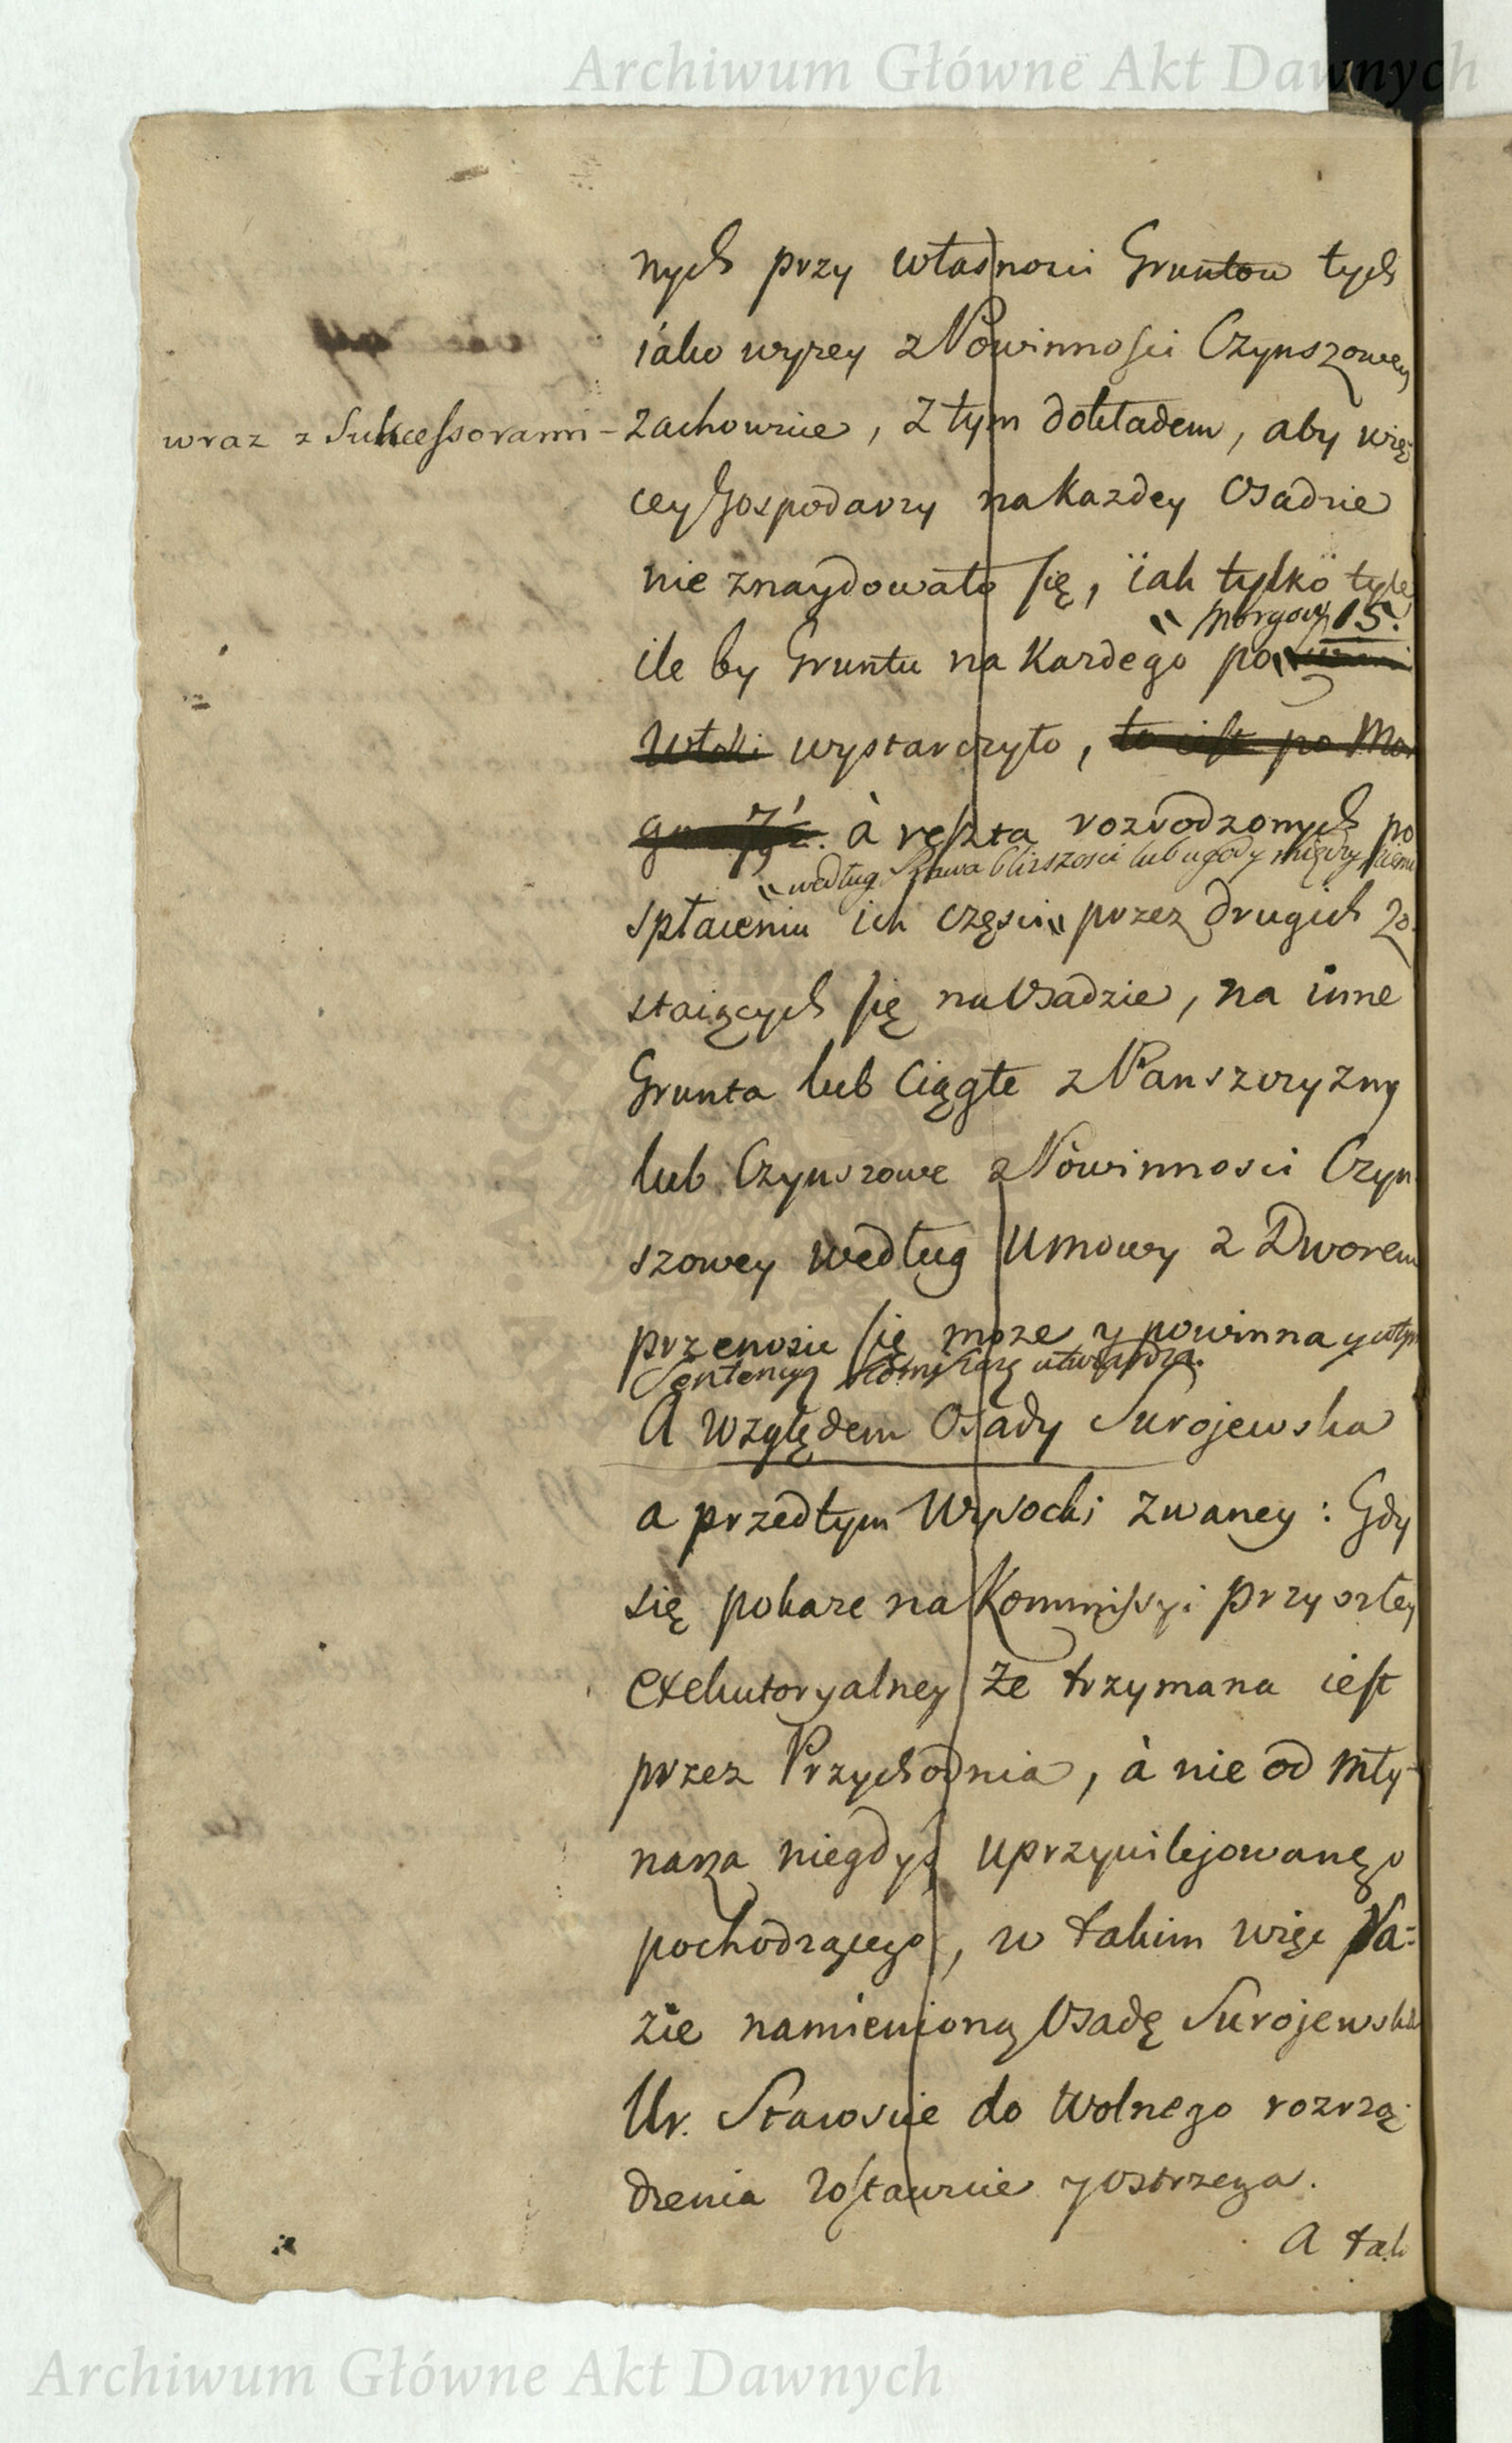 Archiwum Główne Akt Dawnych
nych przy własnosci Gruntow tych
iako wyzey z Powinnosci Czynszowey
wraz z Sukcessorami - zachowuie, z tym dokładem, aby wię-
cey Gospodarzy na kazdey Osadzie
nie znaydowało się, iak tylko tyle
" Morgow 15.
ile by Gruntu na Kazdego po
Włoki wystarczyło, to iest po Mor
go 7½. à reszta rozrodzonych po
" według Prawa blizszosci lub ugody między
spłaceniu ich częsci " przez drugich zo-
staiących się na Osadzie, na inne
Grunta lub Ciągłe z Panszczyzny
lub Czynszowe z Powinnosci Czyn
szowey według Umowy z Dworem
przenosic się moze y powinna y w tym
Sentencyą utwierdza.
A względem Osady Surojewska
a przedtym Wysocki zwaney: Gdy
się pokaze na Kommissyi przyszłey
exekutoryalney ze trzymana iest
przez Przychodnia, à nie od Mły-
narza niegdys uprzywilejowanego
pochodzącego, w takim więc Ra-
zie namienioną Osadę Surojewska
Ur. Staroscie do wolnego rozrzą-
dzenia zostawuie y ostrzega.
A tak
Archiwum Główne Akt Dawnych